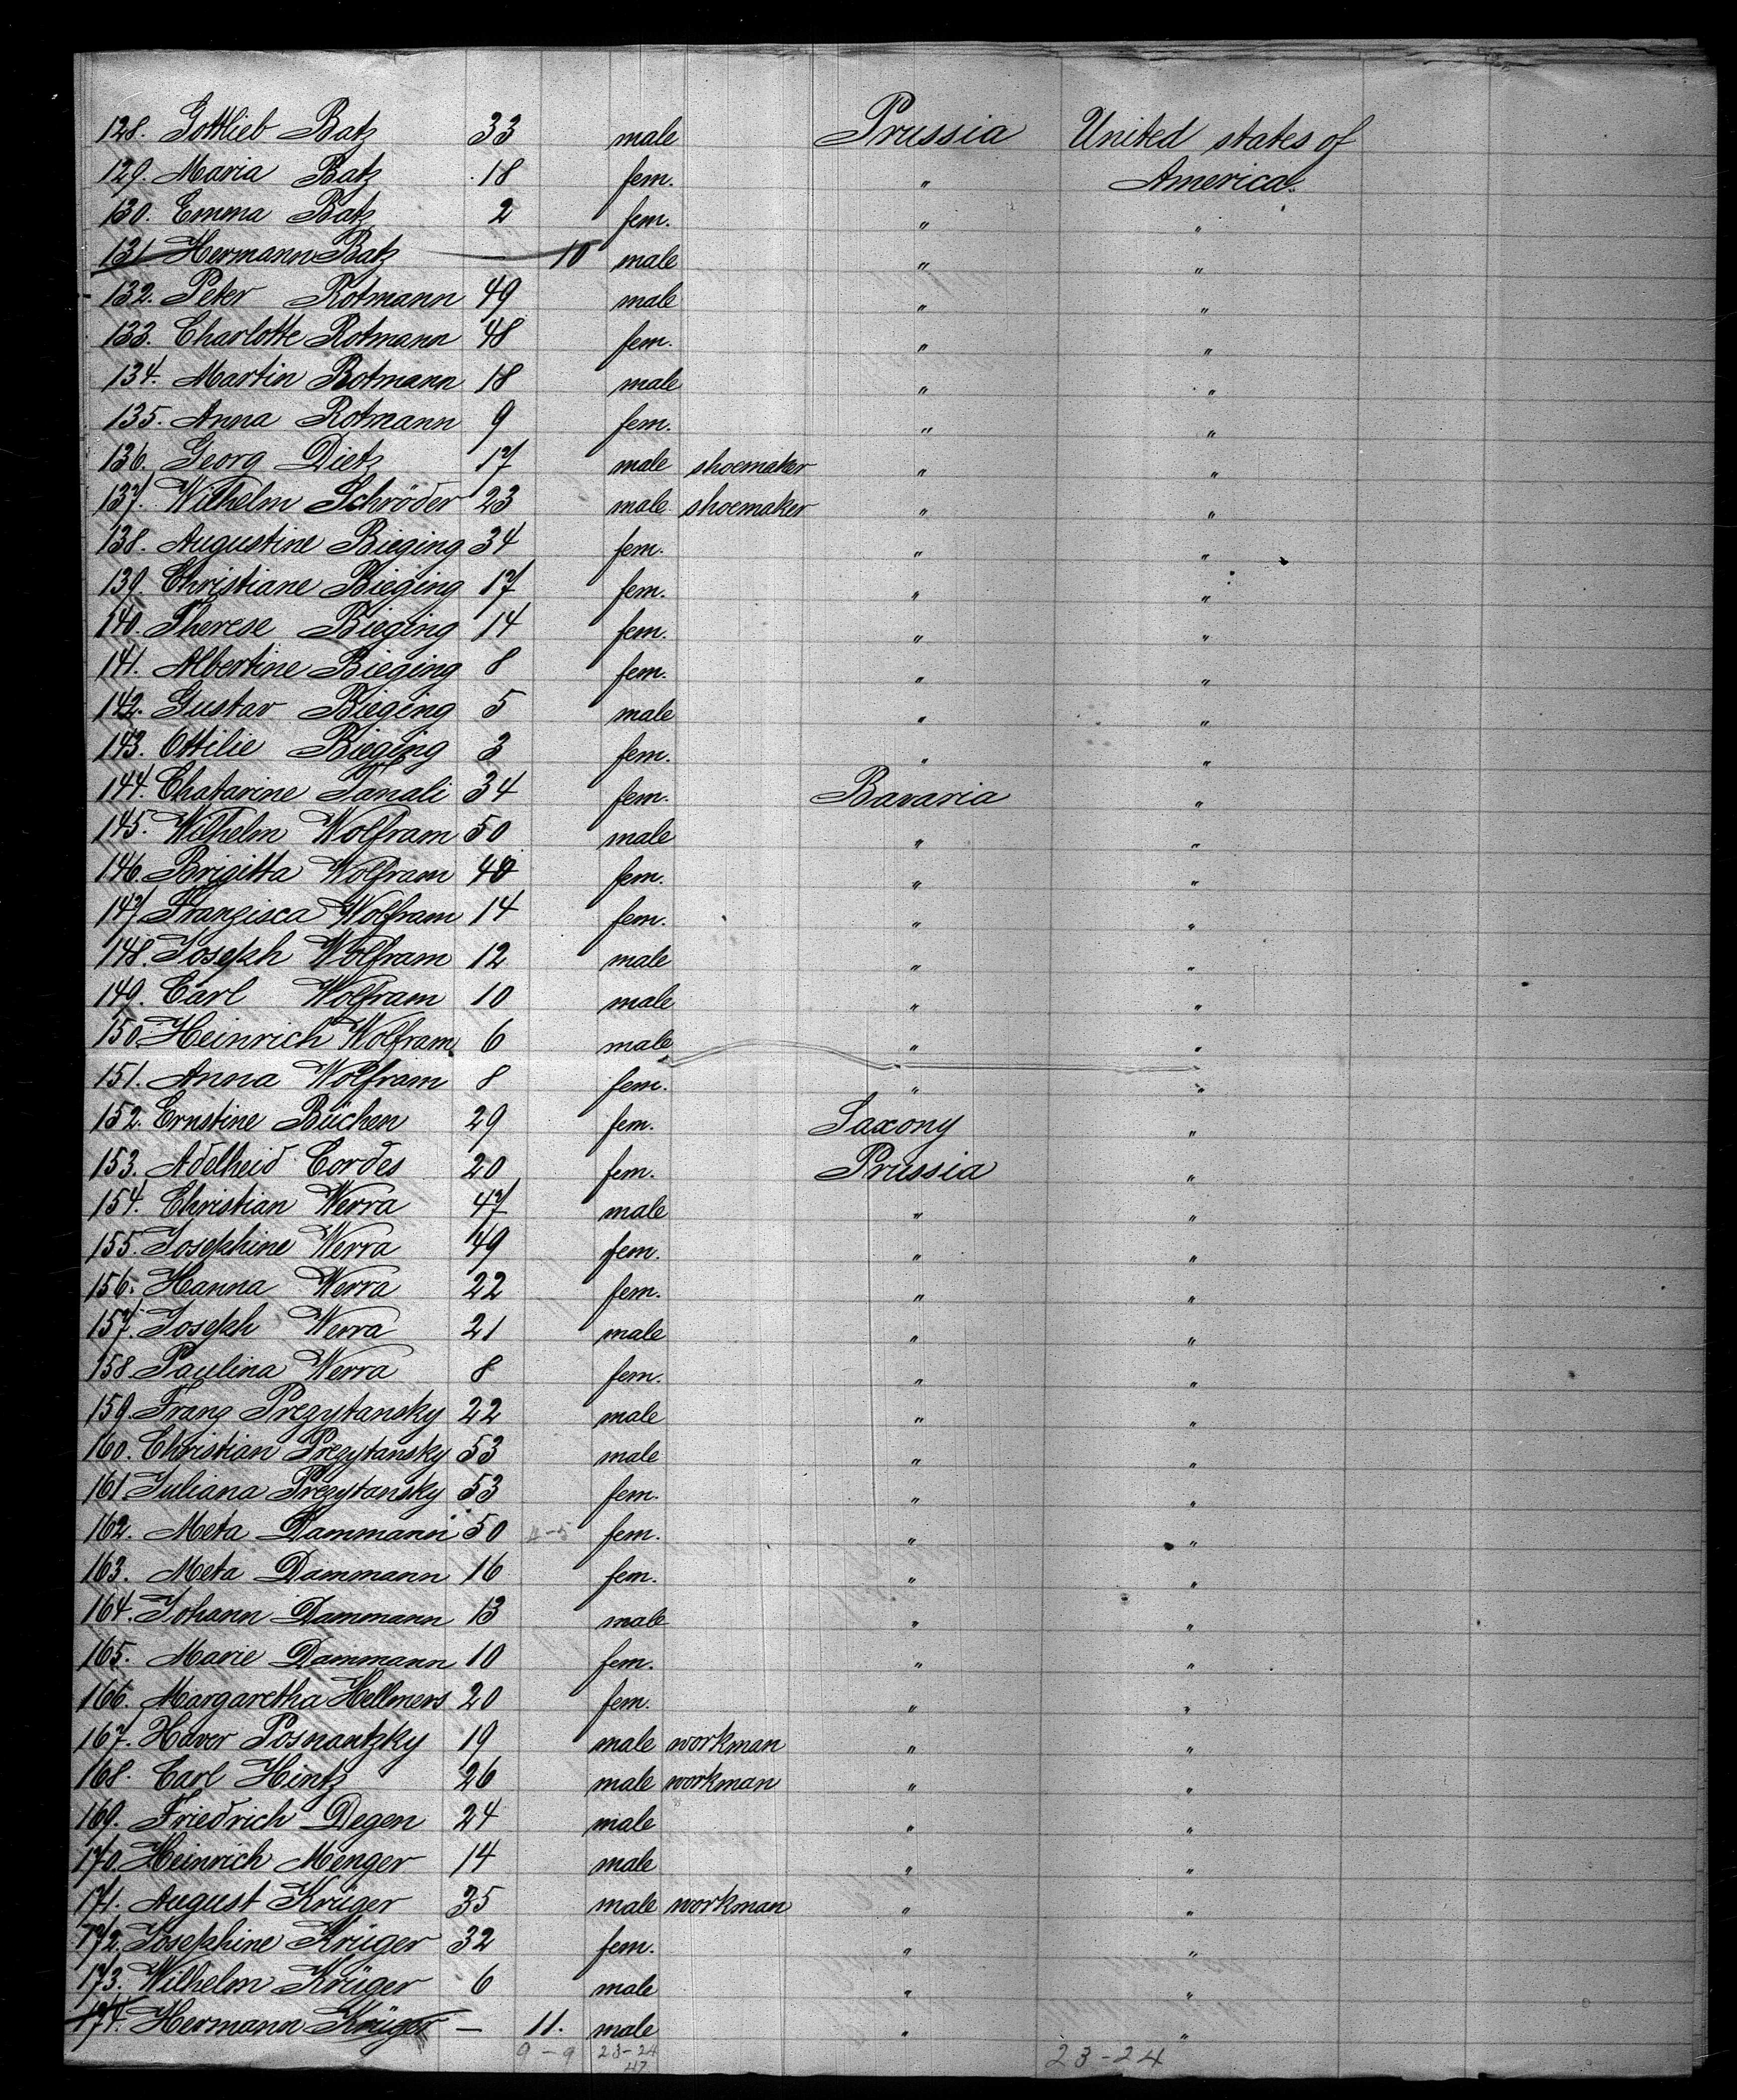 128. Gottlieb Batz 33 male Prussia United states of
129. Maria Batz 18 fem. " America.
130. Emma Batz 2 fem. " "
131 Hermann Batz — 10 male " "
132. Peter Rotmann 49 male " "
133. Charlotte Rotmann 48 fem. " "
134. Martin Rotmann 18 male " "
135. Anna Rotmann 9 fem. " "
136. Georg Dietz 17 male shoemaker " "
137. Wilhelm Schröder 23 male shoemaker " "
138. Augustine Bieging 34 fem. " "
139. Christiane Bieging 17 fem. " "
140. Therese Bieging 14 fem. " "
141. Albertine Bieging 8 fem. " "
142. Gustav Bieging 5 male " "
143. Ottilie Bieging 3 fem. " "
144. Chatarine Tamali 34 fem. Bavaria "
145. Wilhelm Wolfram 50 male " "
146. Brigitta Wolfram fem. " "
147. Franzisca Wolfram 14 fem. " "
148. Joseph Wolfram 12 male " "
149. Carl Wolfram 10 male " "
150. Heinrich Wolfram 6 male " "
151. Anna Wolfram 8 fem. " "
152. Ernstine Büchen 29 fem. Saxony "
153. Adelheid Cordes 20 fem. Prussia "
154. Christian Werra 47 male " "
155. Josephine Werra 49 fem. " "
156. Hanna Werra 22 fem. " "
157. Joseph Werra 21 male " "
158. Paulina Werra 8 fem. " "
159. Franz Prezytansky 22 male " "
160. Christian Prezytansky 53 male " "
161 Juliana Prezytansky 53 fem. " "
162. Meta Dammann 50 4-5 fem. " "
163. Meta Dammann 16 fem. " "
164. Johann Dammann 13 male " "
165. Marie Dammann 10 fem. " "
166. Margaretha Hellmers 20 fem. " "
167. Haver Posnantzky 19 male workman " "
168. Carl Hintz 26 male workman " "
169. Friedrich Degen 24 male " "
170. Heinrich Menger 14 male " "
171. August Krüger 35 male workman " "
172. Josephine Krüger 32 fem. " "
173. Wilhelm Krüger 6 male " "
174. Hermann Krüger — 11. male " "
9-9 23-24 23-24
47